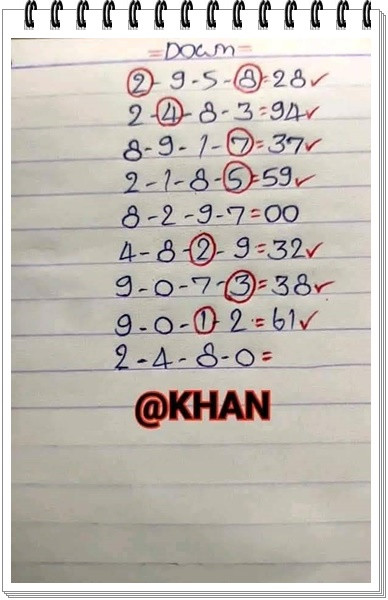 =Down=
2-9-5-8=28✓
2-4-8-3=94✓
8-9-1-7=37✓
2-1-8-5=59✓
8-2-9-7=00
4-8-2-9=32✓
9-0-7-3=38✓
9-0-1-2=61✓
2-4-8-0=
@KHAN